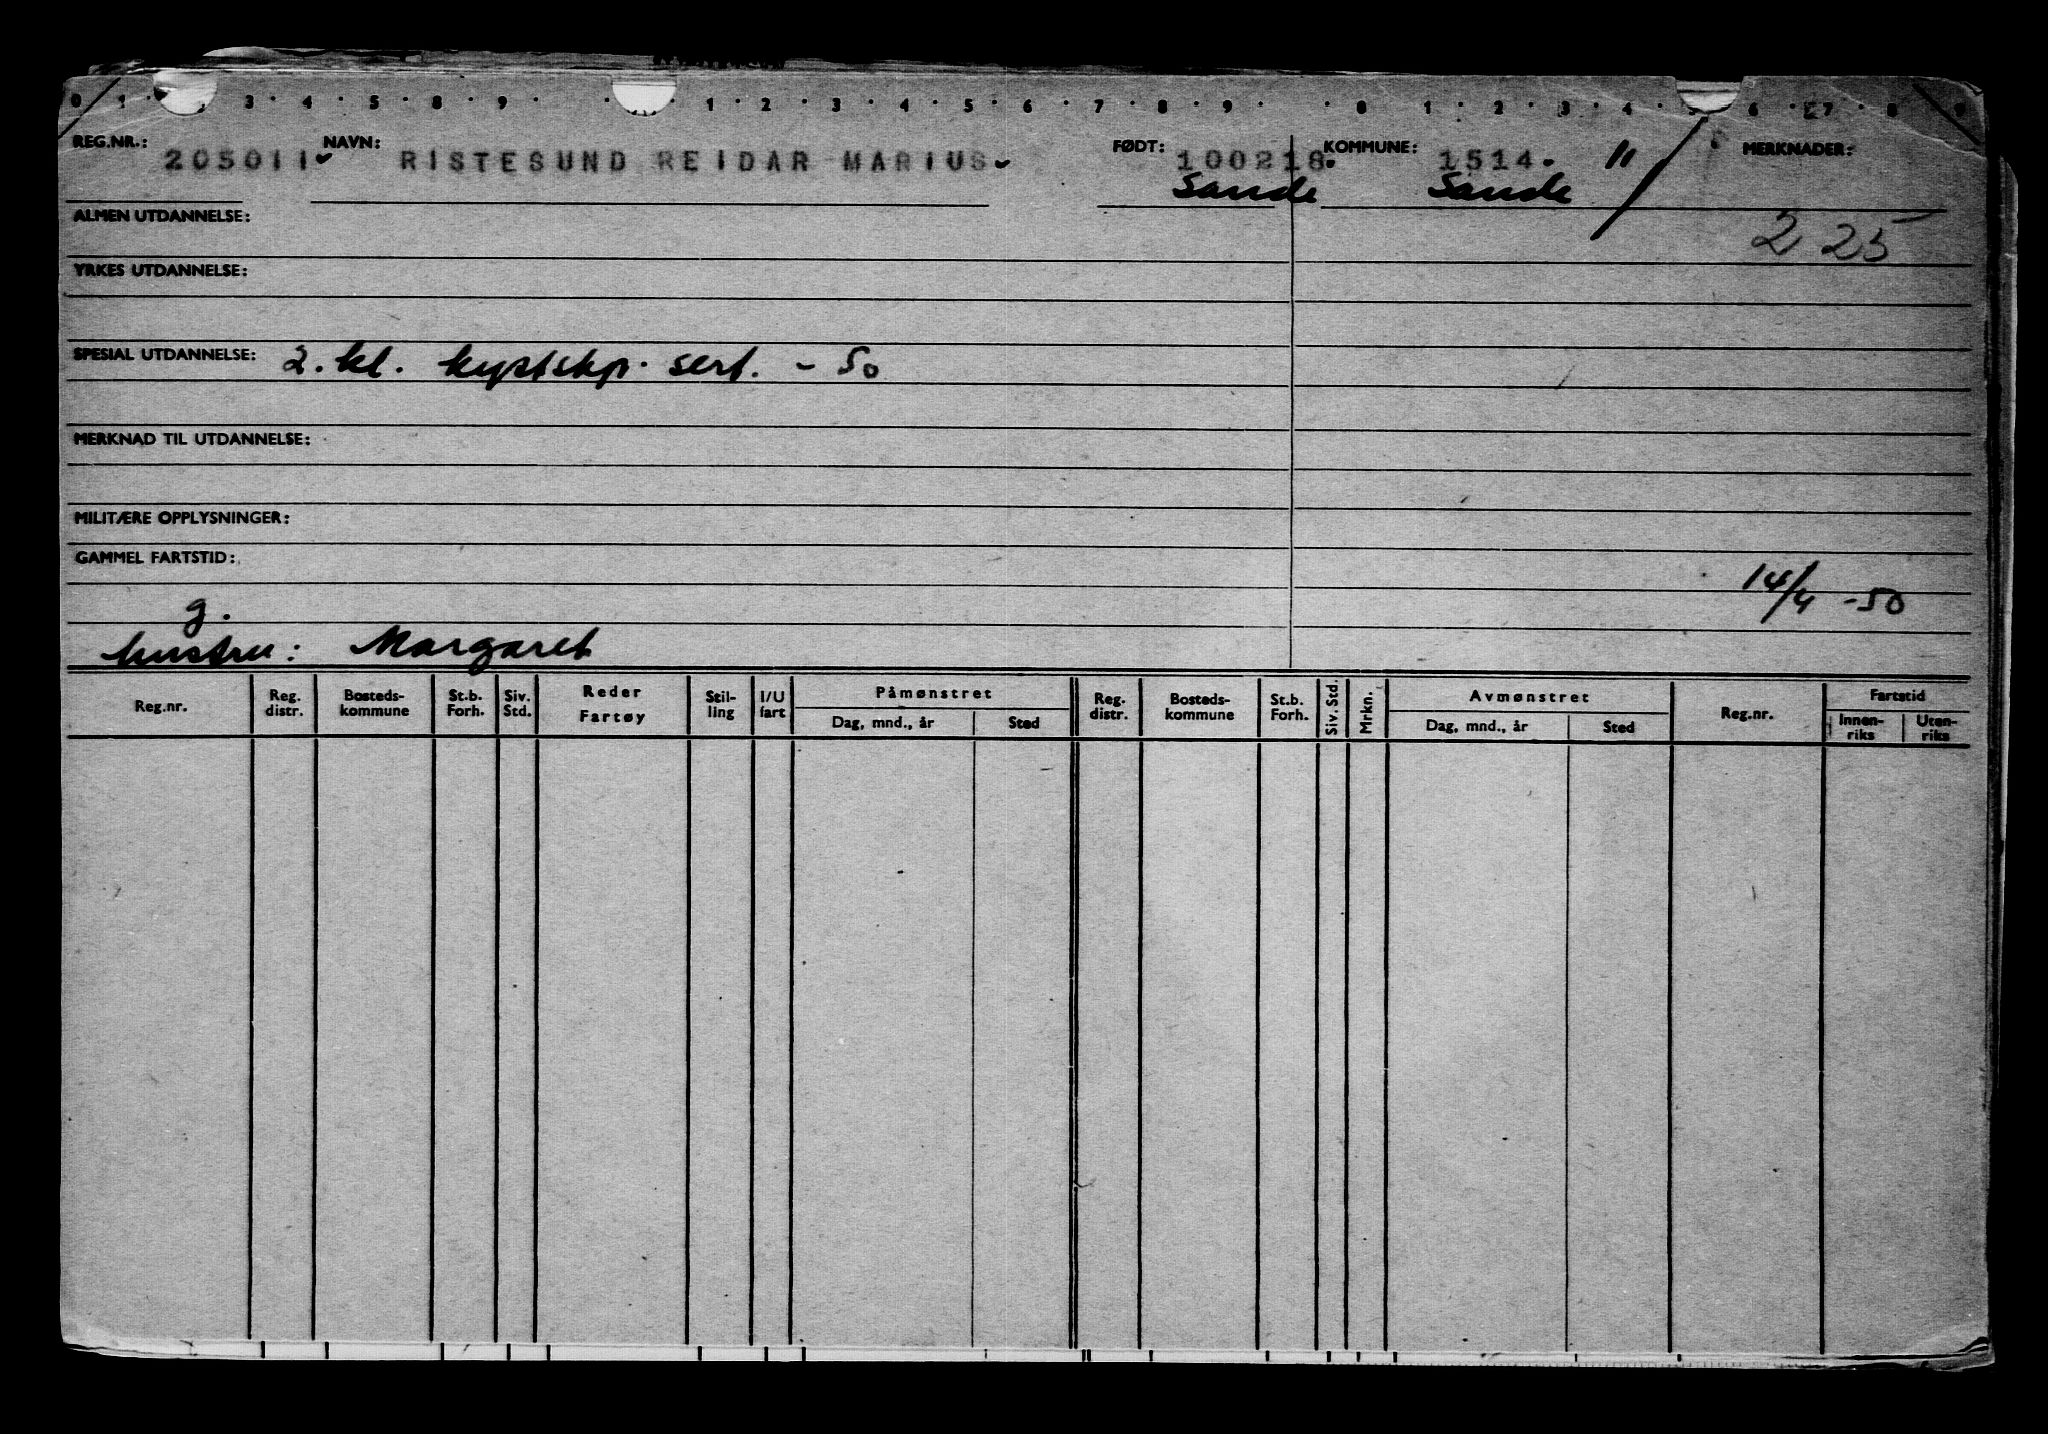 0 1 3 4 5 8 9 1 2 3 4 5 6 7 8 9 8 1 2 3 4 5 6 7 8 9
REG.NR.: 205011 NAVN: RISTESUND REIDAR MARIUS FØDT: 100218. KOMMUNE: 1514. 11 MERKNADER:
Sande Sande
ALMEN UTDANNELSE:
2 25
YRKES UTDANNELSE:
SPESIAL UTDANNELSE: 2. kl. kystskp. sert. - 50
MERKNAD TIL UTDANNELSE:
MILITÆRE OPPLYSNINGER:
GAMMEL FARTSTID:
14/4 -50
g.
hustru: Margaret
Reg.nr. Reg. distr. Bosteds-kommune St.b. Forh. Siv. Std. Reder Fartøy Stil-ling I/U fart Påmønstret Dag, mnd., år Sted Reg. distr. Bosteds-kommune St.b. Forh. Siv. Std. Mrkn. Avmønstret Dag, mnd., år Sted Reg.nr. Fartstid Innen-riks Uten-riks